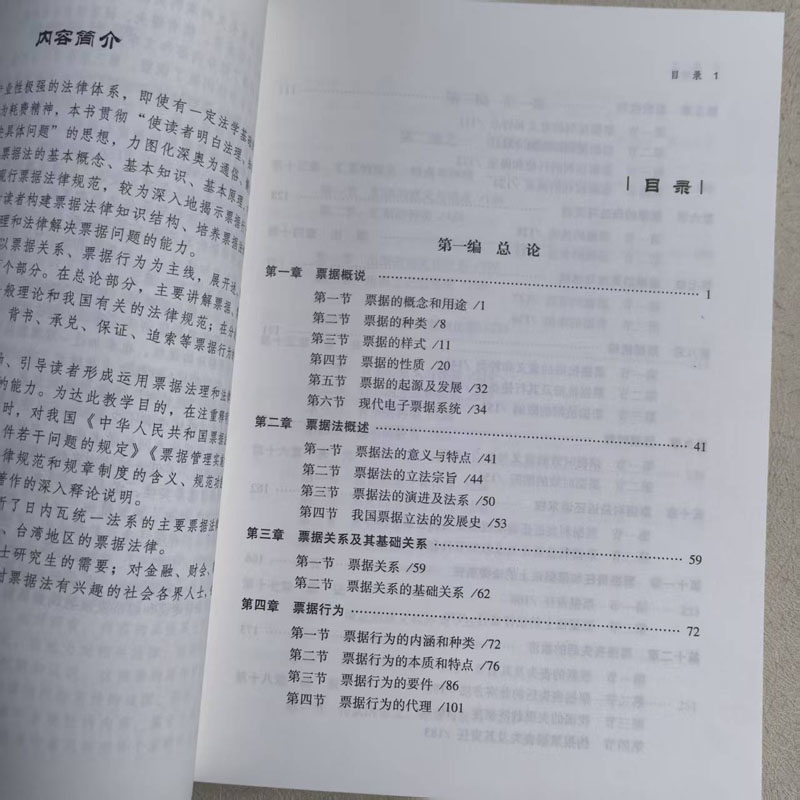 内容简介
业性极强的法律体系，即使有一定法学基础
为耗费精神，本书贯彻“使读者明白法理、
具体问题”的思想，力图化深奥为通俗、
票据法的基本概念、基本知识、基本原理
现行票据法律规范，较为深入地揭示票据
读者构建票据法律知识结构、培养票据法
理和法律解决票据问题的能力。
以票据关系、票据行为为主线，展开
个部分。在总论部分，主要讲解票据、
般理论和我国有关的法律规范；在分
背书、承兑、保证、追索等票据行为
、引导读者形成运用票据法理和法
的能力。为达此教学目的，在注重释
时，对我国《中华人民共和国票据
件若干问题的规定》《票据管理实
律规范和规章制度的含义、规范功
著作的深入释论说明。
析了日内瓦统一法系的主要票据法
、台湾地区的票据法律。
士研究生的需要；对金融、财会、
对票据法有兴趣的社会各界人士，
目 录 1
目 录
第一编 总 论
第一章 票据概说 1
第一节 票据的概念和用途 /1
第二节 票据的种类 /8
第三节 票据的样式 /11
第四节 票据的性质 /20
第五节 票据的起源及发展 /32
第六节 现代电子票据系统 /34
第二章 票据法概述 41
第一节 票据法的意义与特点 /41
第二节 票据法的立法宗旨 /44
第三节 票据法的演进及法系 /50
第四节 我国票据立法的发展史 /53
第三章 票据关系及其基础关系 59
第一节 票据关系 /59
第二节 票据关系的基础关系 /62
第四章 票据行为 72
第一节 票据行为的内涵和种类 /72
第二节 票据行为的本质和特点 /76
第三节 票据行为的要件 /86
第四节 票据行为的代理 /101